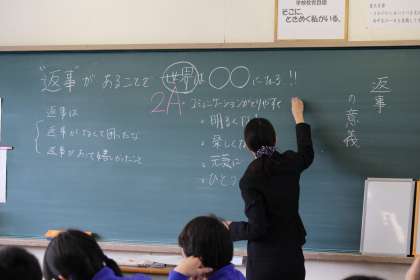 学校教育目標
そこに、
ときめく私がいる。
返事の意義
"返事"があることで 世界は○○になる!!
2A
コミュニケーションがとりやすく
・明るく
・楽しく
・元気に
・ひとつ
返事は
返事がなくて困ったな
返事があって嬉しかったこと